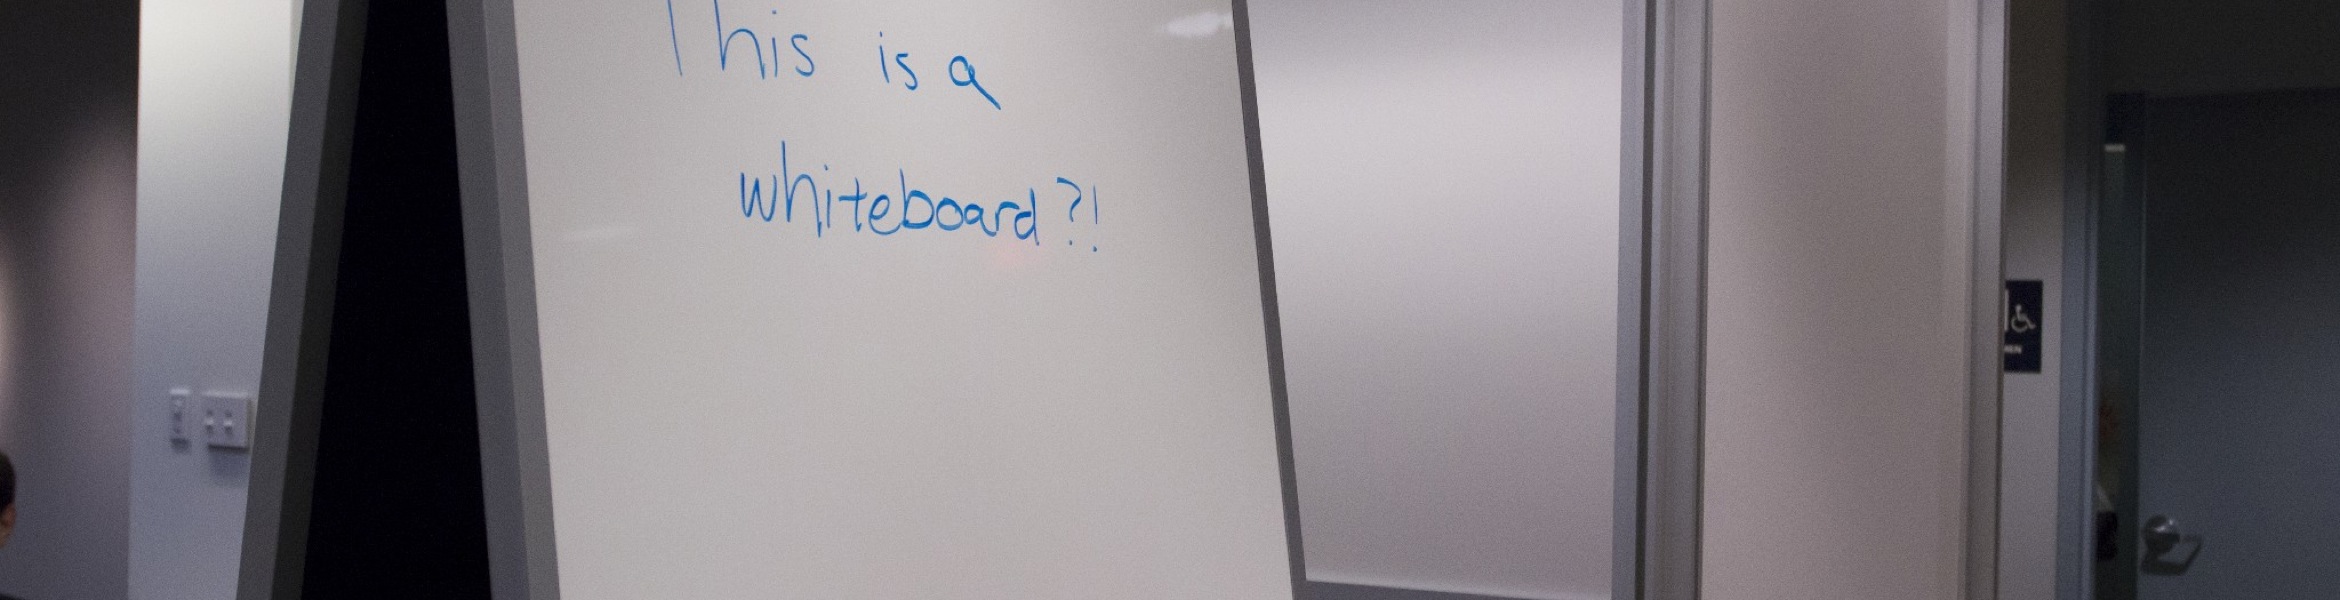 This is a
whiteboard?!